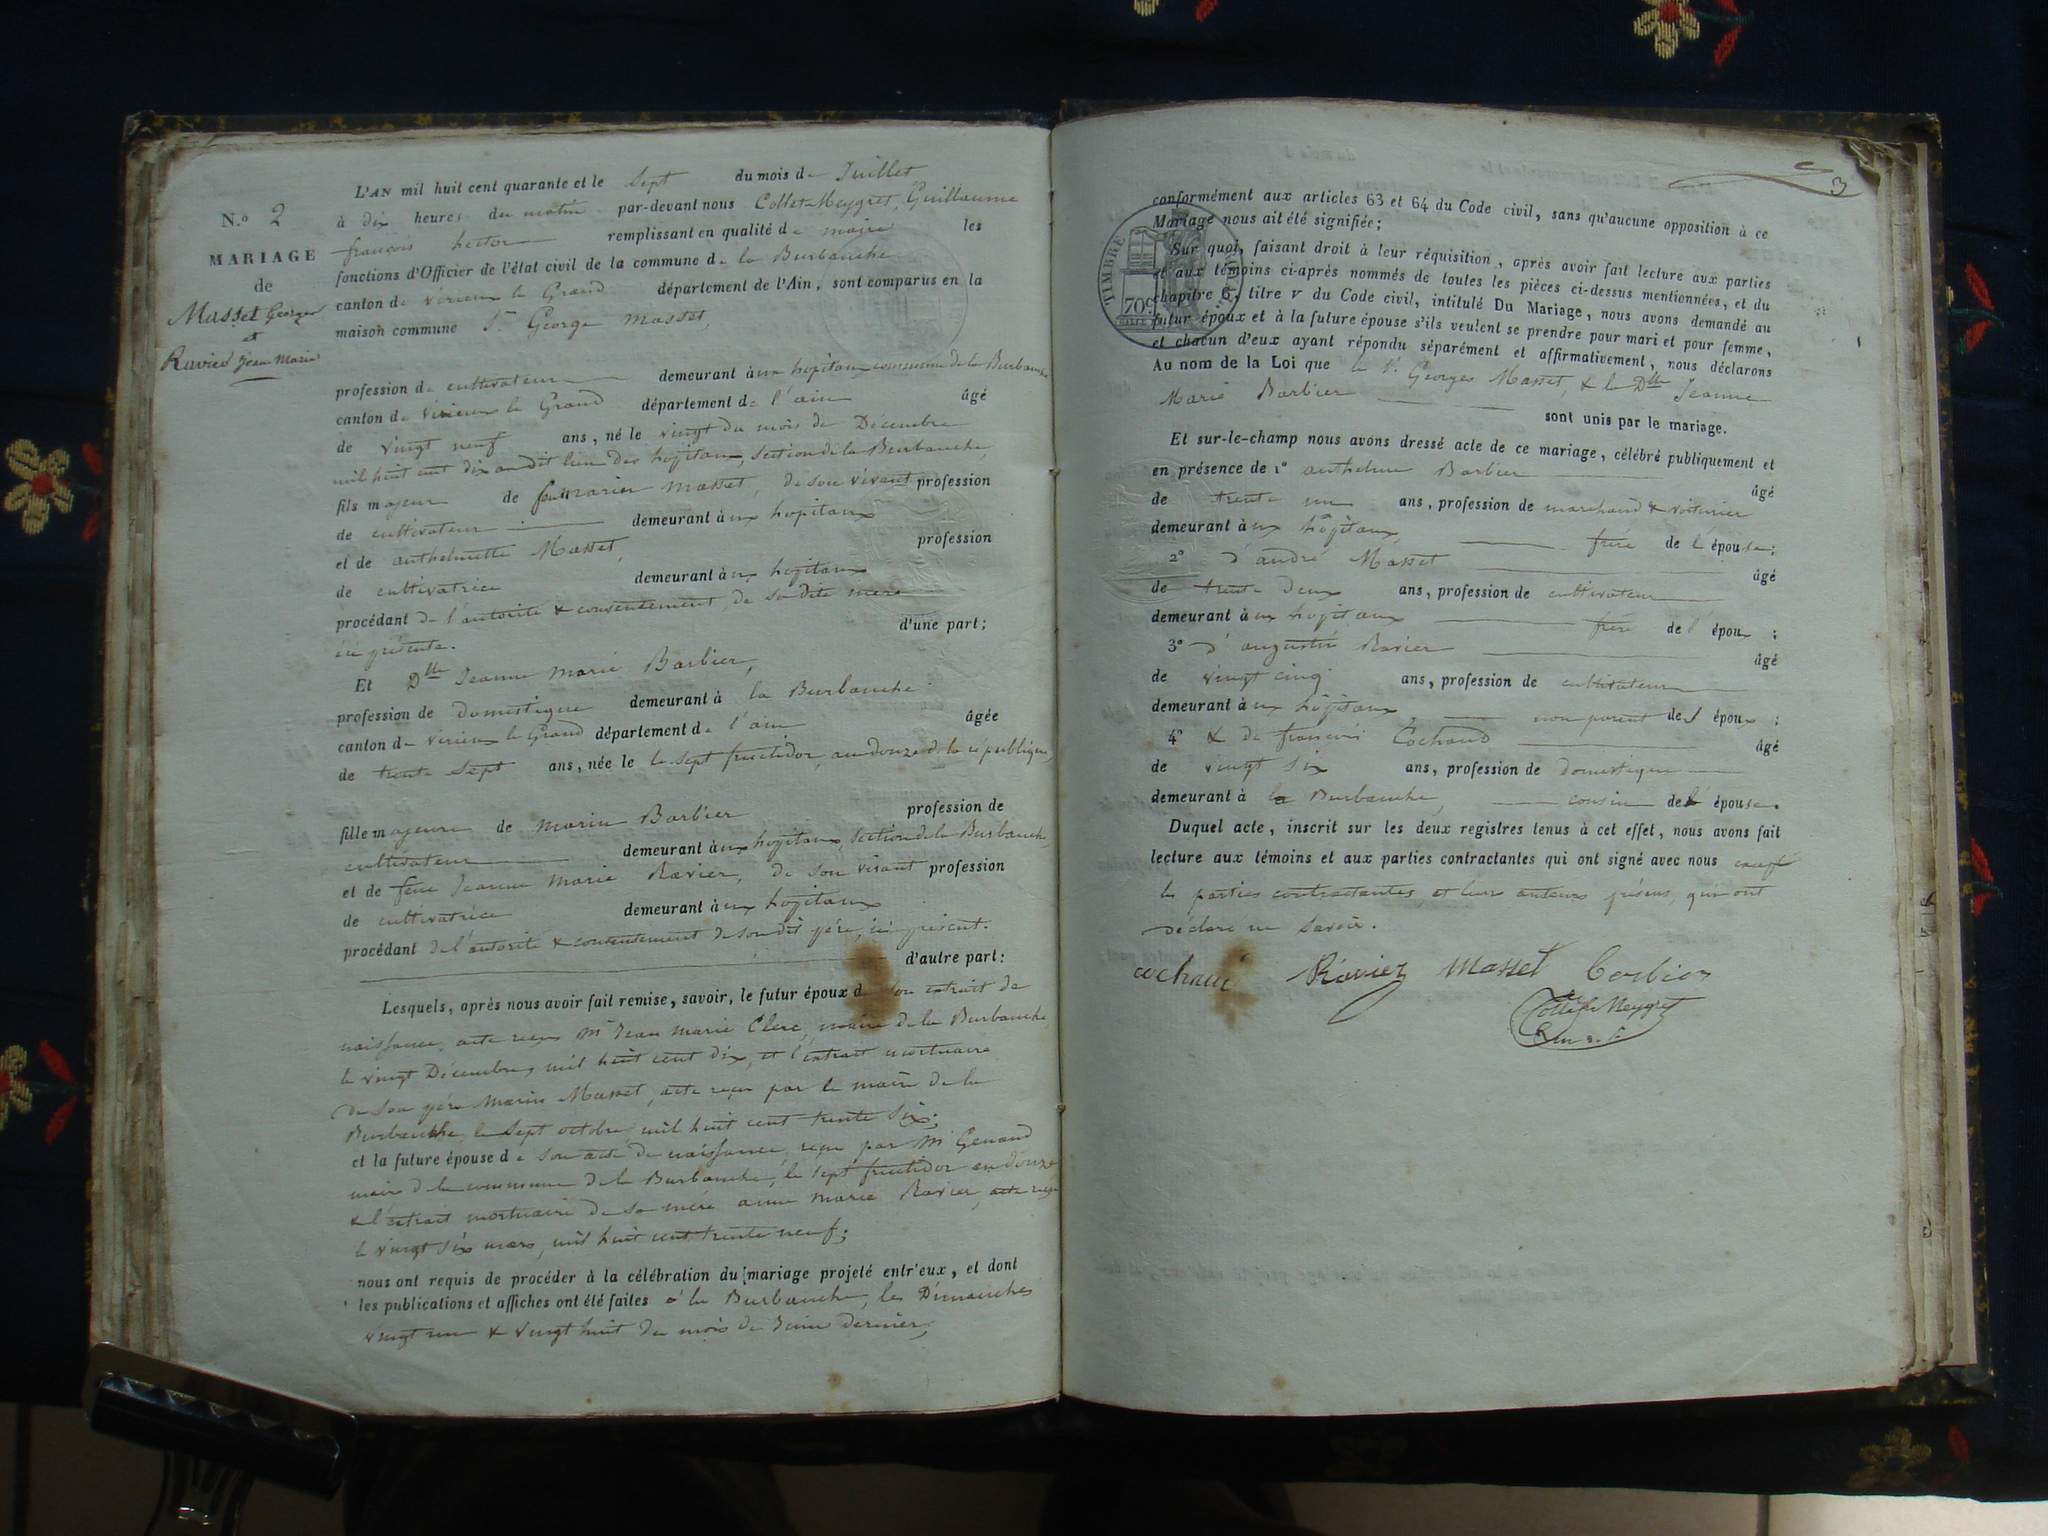 N.o 2
MARIAGE
de
Masset George
et
Ravier Jean Marie
L'AN mil huit cent quarante et le sept du mois de Juillet
à dix heures du matin par-devant nous Collet-Meygret, Guillaume
françois hector remplissant en qualité de maire les
fonctions d'Officier de l'état civil de la commune de la Burbanche
canton de virieux le Grand département de l'Ain, sont comparus en la
maison commune Sr George Masset,
profession de cultivateur demeurant à ux hopitaux commune de la Burbanche
canton de virieux le Grand département de l'ain âgé
de vingt neuf ans, né le vingt du mois de Décembre
mil huit cent dix au dit lieu des hopitaux, section de la Burbanche,
fils majeur de feu marin Masset, de son vivant profession
de cultivateur demeurant à ux hopitaux
et de anthelmette Masset, profession
de cultivatrice demeurant à ux hopitaux
procédant de l'autorité & consentement de sa dite mere
ici présente. d'une part;
Et Dlle Jeanne Marie Barbier,
profession de domestique demeurant à la Burbanche
canton de virieux le Grand département de l'ain âgée
de trente sept ans, née le le sept fructidor, an douze de la république,
fille majeure de Marin Barbier profession de
cultivateur demeurant à ux hopitaux, section de la Burbanche
et de feue Jeanne Marie Ravier, de son vivant profession
de cultivatrice demeurant à ux hopitaux
procédant de l'autorité & consentement de son dit père, ici présent.
d'autre part:
Lesquels, après nous avoir fait remise, savoir, le futur époux de son extrait de
naissance, acte reçu Mr Jean Marie Clerc, maire de la Burbanche,
le vingt Décembre, mil huit cent dix, et l'extrait mortuaire
de son père Marin Masset, acte reçu par le maire de la
Burbanche, le sept octobre mil huit cent trente six;
et la future épouse de son acte de naissance, reçu par Mr Genand
maire de la commune de la Burbanche, le sept fructidor an douze
& l'extrait mortuaire de sa mère anne Marie Ravier, acte reçu
le vingt six mars, mil huit cent trente neuf;
nous ont requis de procéder à la célébration du mariage projeté entr'eux, et dont
les publications et affiches ont été faites à la Burbanche, les Dimanches
vingt un & vingt huit du mois de Juin dernier;
3
TIMBRE
70c
conformément aux articles 63 et 64 du Code civil, sans qu'aucune opposition à ce
Mariage nous ait été signifiée;
Sur quoi, faisant droit à leur réquisition, après avoir fait lecture aux parties
et aux témoins ci-après nommés de toutes les pièces ci-dessus mentionnées, et du
chapitre 6, titre V du Code civil, intitulé Du Mariage, nous avons demandé au
futur époux et à la future épouse s'ils veulent se prendre pour mari et pour femme,
et chacun d'eux ayant répondu séparément et affirmativement, nous déclarons
Au nom de la Loi que le Sr Georges Masset, & la Dlle Jeanne
Marie Barbier sont unis par le mariage.
Et sur-le-champ nous avons dressé acte de ce mariage, célébré publiquement et
en présence de 1o anthelme Barbier âgé
de trente un ans, profession de marchand & voiturier
demeurant à ux hopitaux, frère de l'épouse;
2o d'andré Masset âgé
de trente deux ans, profession de cultivateur
demeurant à ux hopitaux frère de l'époux;
3o d'augustin Ravier âgé
de vingt cinq ans, profession de cultivateur
demeurant à ux hopitaux non parent des époux;
4o & de françois Cochaud âgé
de vingt six ans, profession de domestique
demeurant à la Burbanche, cousin de l'épouse.
Duquel acte, inscrit sur les deux registres tenus à cet effet, nous avons fait
lecture aux témoins et aux parties contractantes qui ont signé avec nous excepté
les parties contractantes, et leurs auteurs présens, qui ont
déclaré ne savoir.
Ravier Masset
Collet Meygret